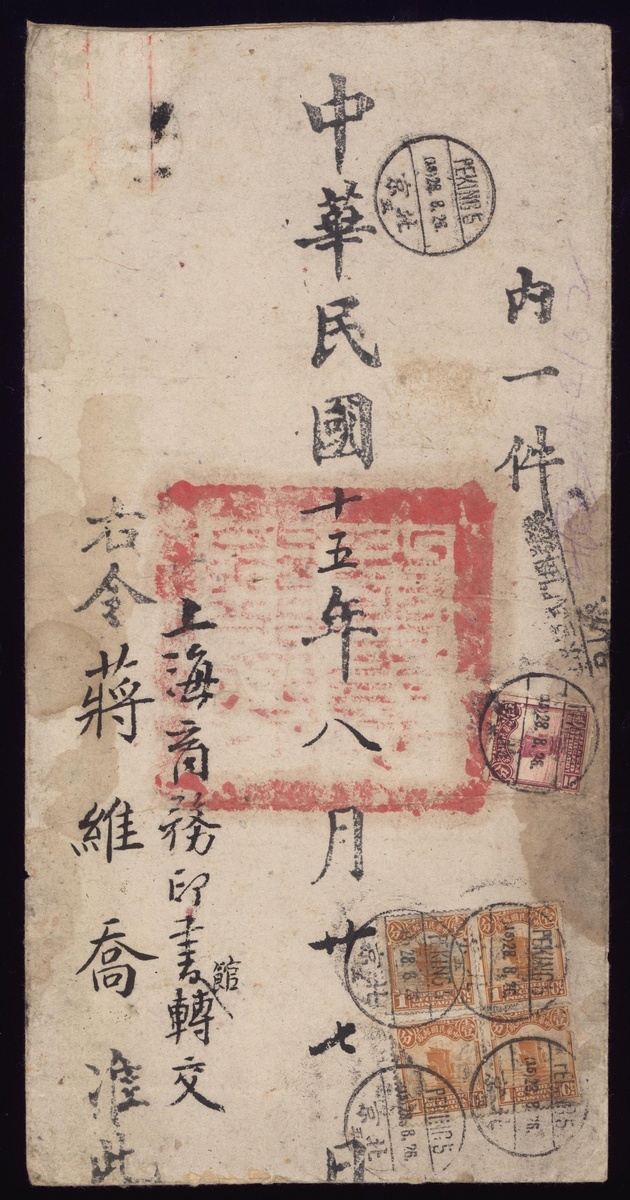 內一件
中華民國十五年八月廿七日
上海商務印書館轉交
右令蔣維喬准此
PEKING 5
28. 8. 26.
北京
28. 8. 26.
PEKING
28. 8. 26.
PEKING
28. 8. 26.
PEKING 5
28. 8. 26.
北京
PEKING 5
28. 8. 26.